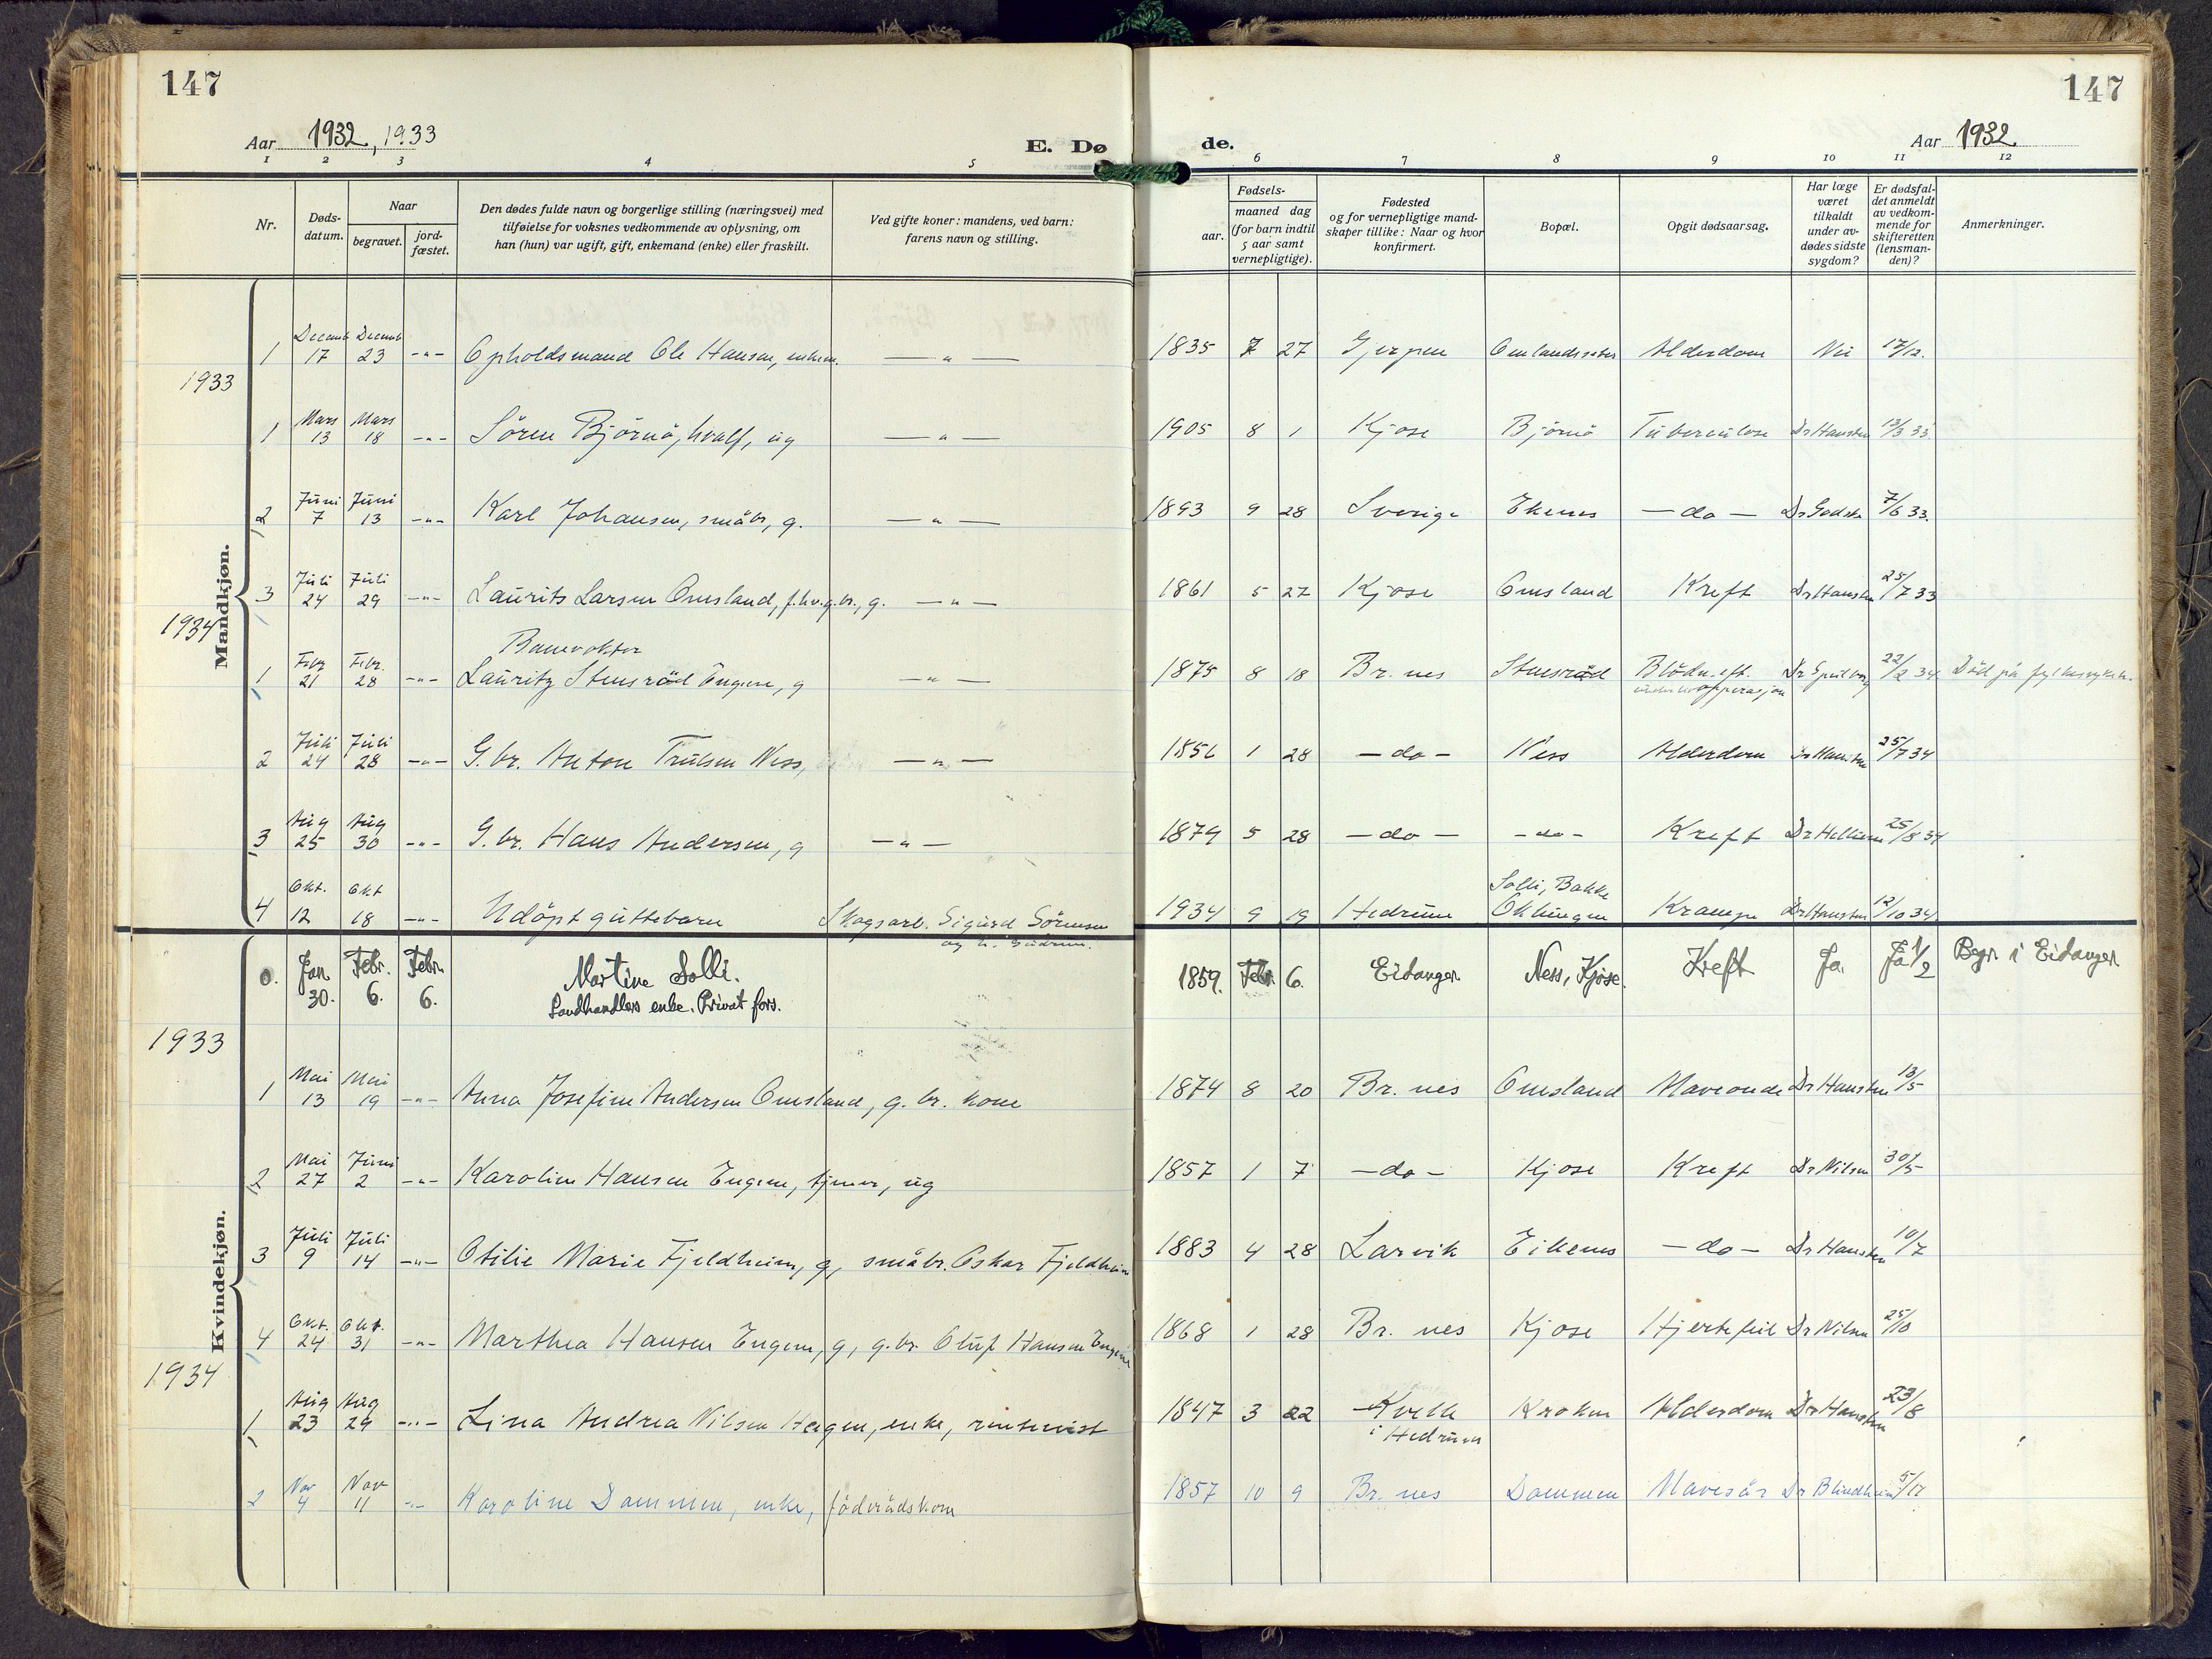 147
147
Aar 1932, 1933
E. Dø
de.
Aar 1932
1 2 3 4 5 6 7 8 9 10 11 12
Nr.
Døds-
datum.
Naar
begravet.
jord-
fæstet.
Den dødes fulde navn og borgerlige stilling (næringsvei) med
tilføielse for voksnes vedkommende av oplysning, om
han (hun) var ugift, gift, enkemand (enke) eller fraskilt.
Ved gifte koner: mandens, ved barn:
farens navn og stilling.
Fødsels-
aar.
maaned dag
(for barn indtil
5 aar samt
vernepligtige).
Fødested
og for vernepligtige mand-
skaper tillike: Naar og hvor
konfirmert.
Bopæl.
Opgit dødsaarsag.
Har læge
været
tilkaldt
under av-
dødes sidste
sygdom?
Er dødsfal-
det anmeldt
av vedkom-
mende for
skifteretten
(lensman-
den)?
Anmerkninger.
Mandkjøn.
1 Decemb 17 Decemb 23 -"- Opholdsmand Ole Hansen, enkem. — " — 1835 7 27 Gjerpen Omlandsseter Alderdom Nei 17/12.
1933
1 Mars 13 Mars 18 -"- Sören Björnö, hvalf, ug — " — 1905 8 1 Kjose Björnö Tuberculose Dr Hansten 13/3 33.
2 Juni 7 Juni 13 -"- Karl Johansen, småbr, g. — " — 1893 9 28 Sverige Ekenes — do — Dr Godske 7/6 33.
3 Juli 24 Juli 29 -"- Laurits Larsen Omsland, f.hv.g.br., g. — " — 1861 5 27 Kjose Omsland Kreft Dr Hansten 25/7 33
1934
Banevokter
1 Febr 21 Febr. 28 -"- Lauritz Stensröd Engene, g — " — 1875 8 18 Br. nes Stensröd Blödn. eft. Dr 22/2 34 Död på fylkessykeh.
2 Juli 24 Juli 28 -"- G. br. Anton Trulsen Ness, — " — 1856 1 28 — do — Ness Alderdom Dr Hansten 25/7 34
3 Aug 25 Aug 30 -"- G. br. Hans Andersen, g — " — 1879 5 28 — do — - do - Kreft Dr 25/8 34
Solli, Bakke
4 Okt. 12 Okt 18 -"- Udöpt guttebarn Skogsarb. Sigurd Sörensen 1934 9 19 Hedrum Oklungen Krampe Dr Hansten 12/10 34
og h. Gudrun.
Kvindekjøn.
0. Jan 30. Febr. 6. Febr. 6. Martine Solli. 1859. Febr. 6. Eidanger Ness, Kjose. Kreft Ja. Ja 1/2 Begr. i Eidanger
Landhandlers enke. Privat fors.
1933
1 Mai 13 Mai 19 -"- Anna Josefine Andersen Omsland, g. br. kone 1874 8 20 Br. nes Omsland Maveonde Dr Hansten 13/5
2 Mai 27 Juni 2 -"- Karoline Hansen Engene, tjener, ug 1857 1 7 — do — Kjose Kreft Dr Nilsen 30/5
3 Juli 9 Juli 14 -"- Otilie Marie Fjeldheim, g, småbr. Oskar Fjeldheim 1883 4 28 Larvik Eikenes — do — Dr Hansten 10/7
4 Okt. 24 Okt. 31 -"- Marthea Hansen Engene, g, g. br. Oluf Hansen Engene 1868 1 28 Br. nes Kjose Hjertefeil Dr Nilsen 25/10
1934
1 Aug 23 Aug 29 -"- Lina Andrea Nilsen Hagen, enke, rentenist 1847 3 22 Kvelle Kroken Alderdom Dr Hansten 23/8
i Hedrum
2 Nov 4 Nov 11 -"- Karoline Dammen, enke, föderådskone 1857 10 9 Br. nes Dammen Mavesår Dr Blindheim 5/11